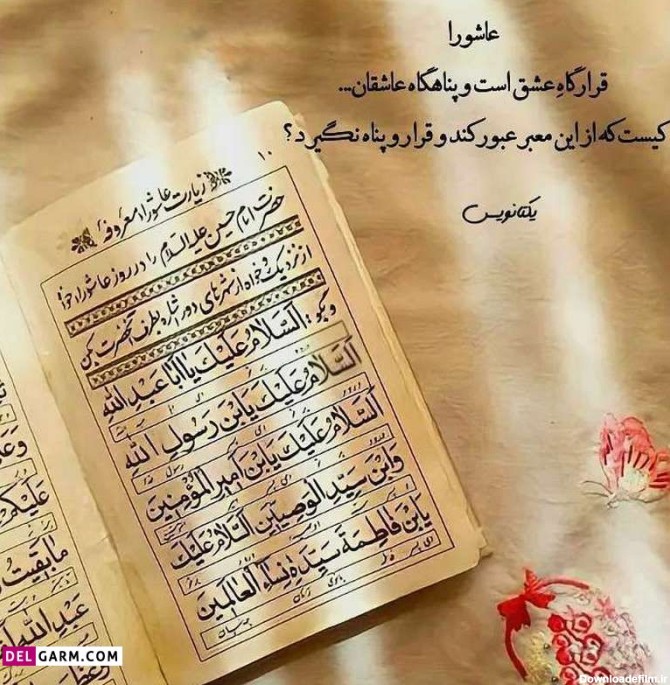 عاشورا
قرارگاهِ عشق است و پناهگاه عاشقان...
کیست که از این معبر عبور کند و قرار و پناه نگیرد؟
یکتانویس
١٠
زیارت عاشورا معروفه
حضرت امام حسین علیه السلام را در روز عاشورا خواه
از نزدیک و خواه از شهرهای دور اشاره بطرف آنحضرت کن
و بگو: اَلسَّلامُ عَلَيْكَ يا اَبا عَبْدِ اللهِ
اَلسَّلامُ عَلَيْكَ يَابْنَ رَسُولِ اللهِ
اَلسَّلامُ عَلَيْكَ يَابْنَ اَميرِ الْمُؤْمِنينَ
وَابْنَ سَيِّدِ الْوَصِيّينَ اَلسَّلامُ عَلَيْكَ
يَابْنَ فاطِمَةَ سَيِّدَةِ نِساءِ الْعالَمينَ
عَلَيْكُمْ
ما بَقيتُ
عَبْدِ اللهِ
DELGARM.COM
Downloadefilm.ir